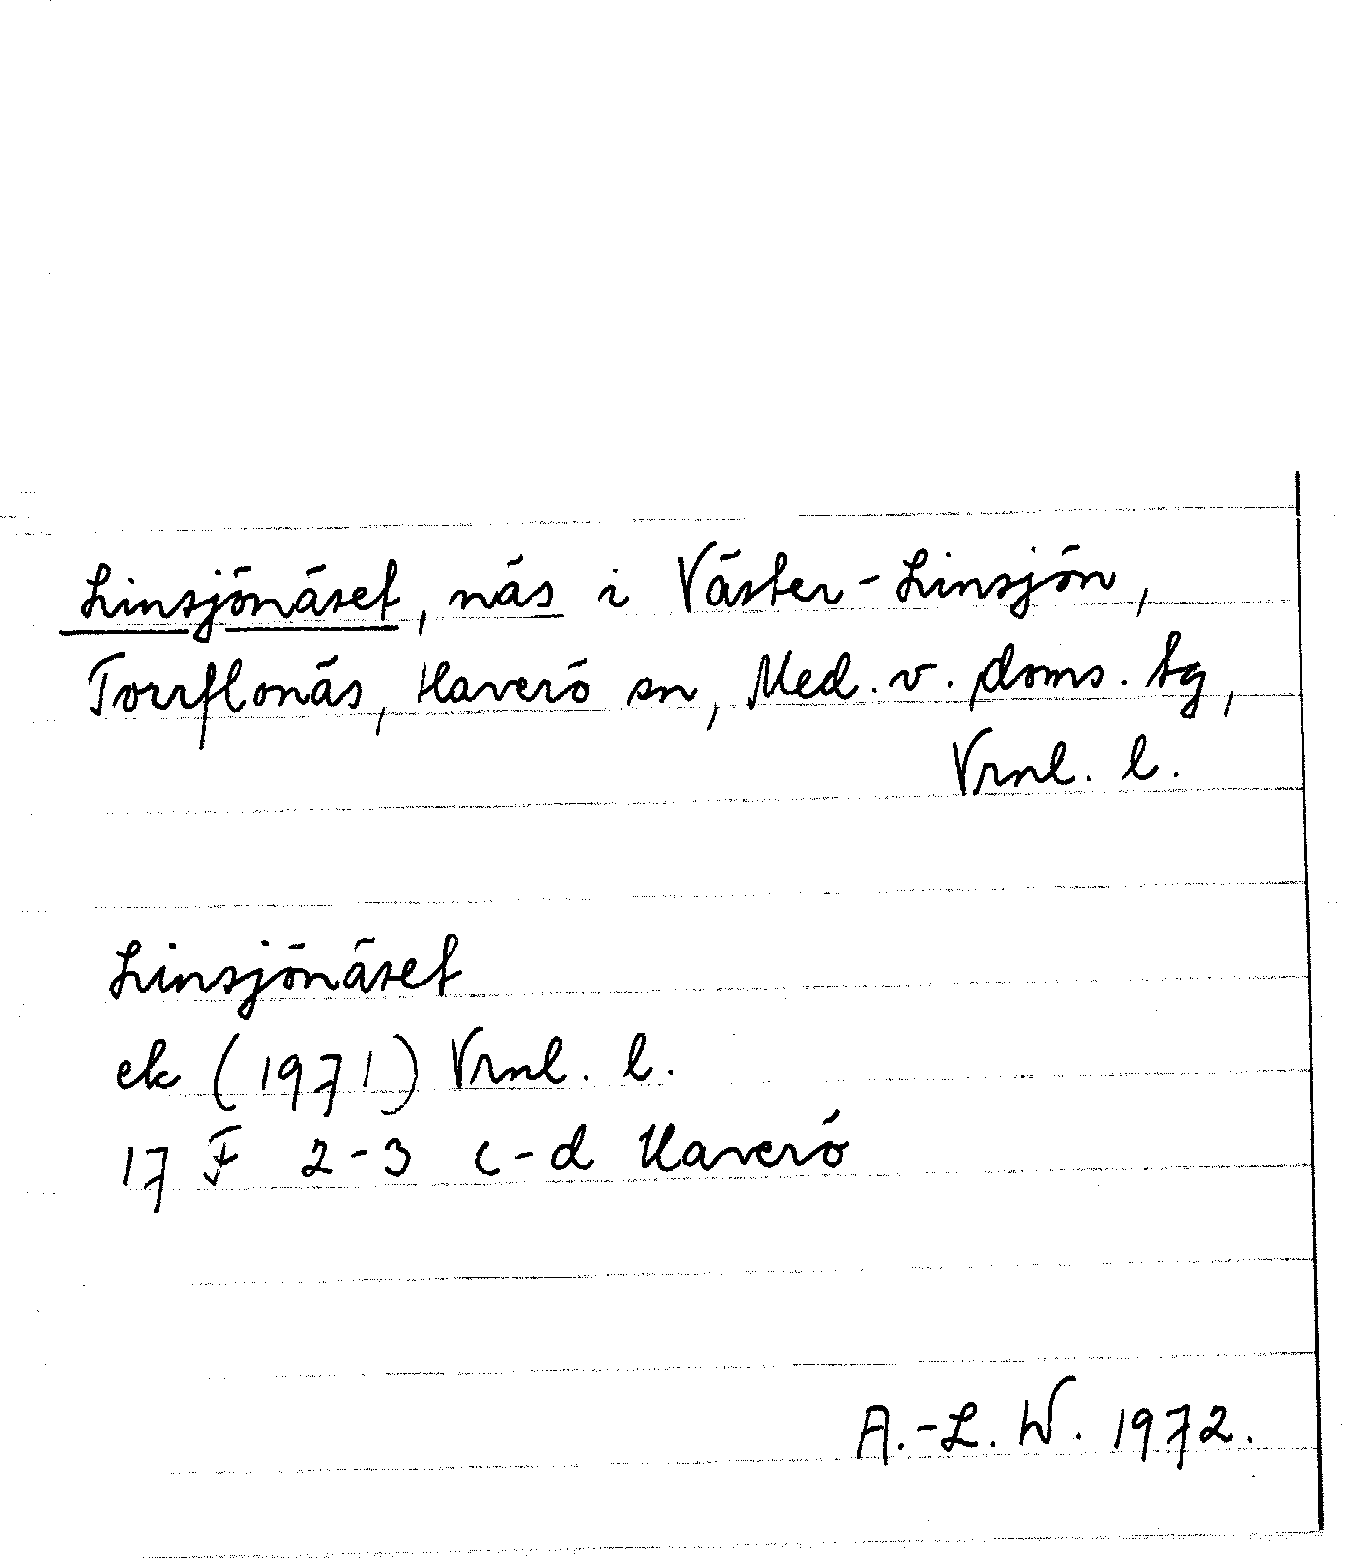 Linsjönäset, näs i Väster-Linsjön,
Torrflonäs, Haverö sn, Med. v. doms. tg,
Vrnl. l.
Linsjönäset
ek (1971) Vrnl. l.
17 F 2-3 c-d Haverö
A.-L. W. 1972.